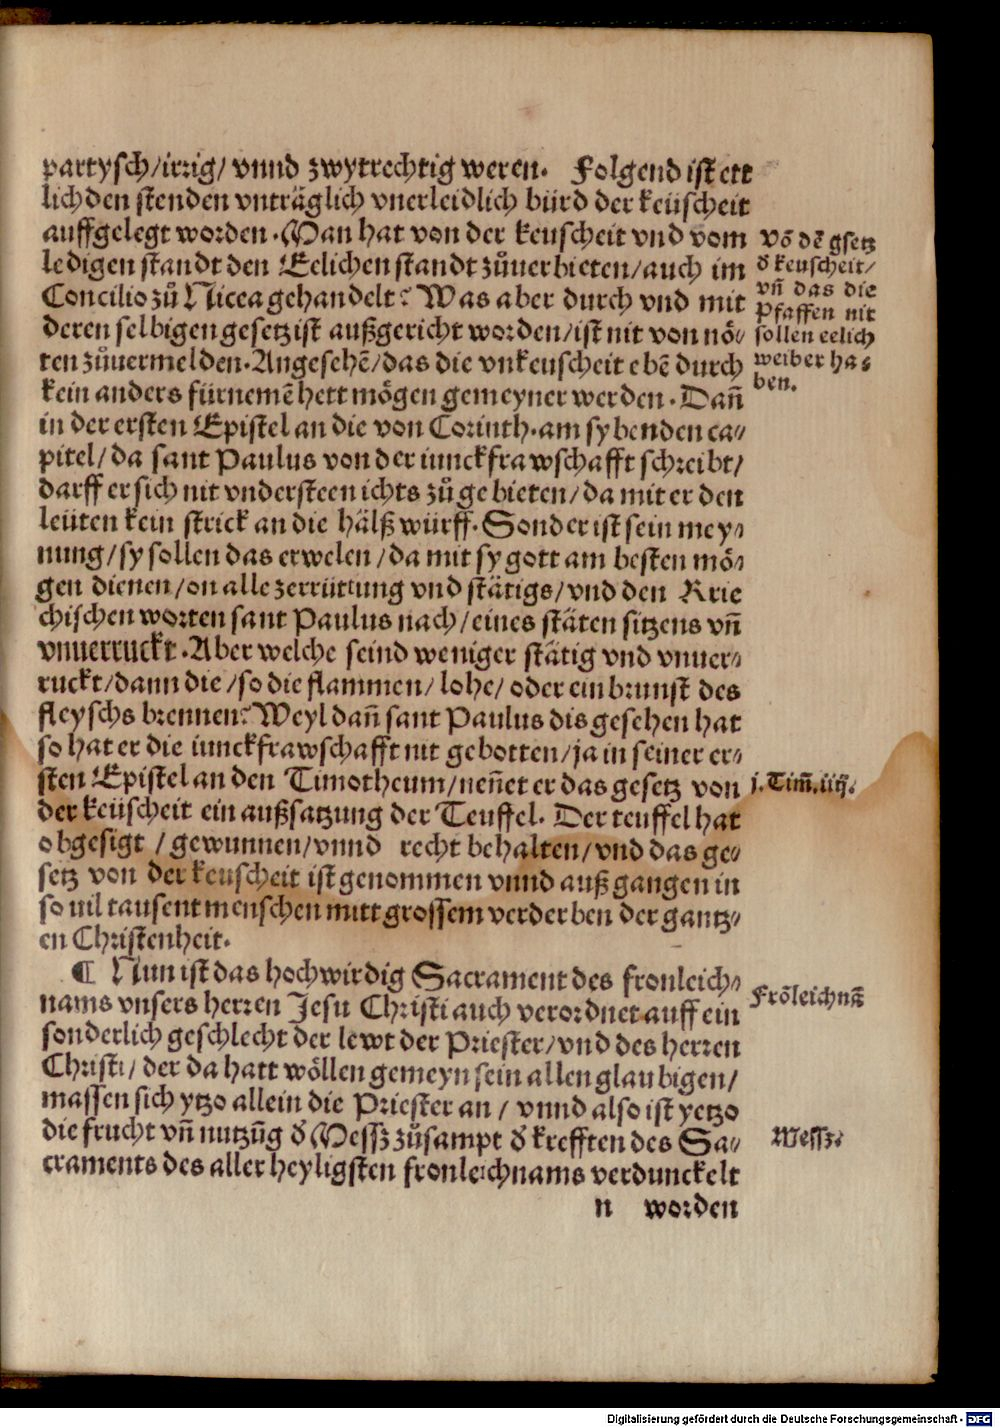 partysch/irrig/ vnnd zwytrechtig weren. Folgend ist ett
lich den stenden vnträglich vnerleidlich bürd der keüscheit
auffgelegt worden. Man hat von der keuscheit vnd vom
ledigen standt den Eelichen standt zůuerbieten/auch im
Concilio zů Nicea gehandelt? Was aber durch vnd mit
deren selbigen gesetz ist außgericht worden/ist nit von nö⸗
ten zůuermelden. Angesehẽ/das die vnkeuscheit ebẽ durch
kein anders fürnemẽ hett mögen gemeyner werden. Dañ
in der ersten Epistel an die von Corinth. am sybenden ca⸗
pitel/da sant Paulus von der iunckfrawschafft schreibt/
darff er sich nit vndersteen ichts zů gebieten/da mit er den
leüten kein strick an die hälß würff. Sonder ist sein mey⸗
nung/sy sollen das erwelen/da mit sy gott am besten mö⸗
gen dienen/on alle zerrüttung vnd stätigs/vnd den Krie
chischen worten sant Paulus nach/eines stäten sitzens vñ
vnuerruckt. Aber welche seind weniger stätig vnd vnuer⸗
ruckt/dann die/so die flammen/lohe/oder ein brunst des
fleyschs brennen? Weyl dañ sant Paulus dis gesehen hat
so hat er die iunckfrawschafft nit gebotten/ja in seiner er⸗
sten Epistel an den Timotheum/neñet er das gesetz von
der keüscheit ein außsatzung der Teuffel. Der teuffel hat
obgesigt /gewunnen/vnnd recht behalten/vnd das ge⸗
setz von der keuscheit ist genommen vnnd außgangen in
so uil tausent menschen mitt grossem verderben der gantz⸗
en Christenheit.
¶ Nun ist das hochwirdig Sacrament des fronleich⸗
nams vnsers herren Jesu Christi auch verordnet auff ein
sonderlich geschlecht der lewt der Priester/vnd des herren
Christi/der da hatt wöllen gemeyn sein allen glaubigen/
massen sich ytzo allein die Priester an/ vnnd also ist yetzo
die frucht vñ nutzũg d̕ Messz zůsampt d̕ krefften des Sa⸗
craments des aller heyligsten fronleichnams verdunckelt
n worden
Võ dẽ gsetz
d̕ keuscheit/
vñ das die
Pfaffen nit
sollen eelich
weiber ha⸗
ben.
j. Tim̃. iiij.
Frõleichnã
Messz.
Digitalisierung gefördert durch die Deutsche Forschungsgemeinschaft - DFG